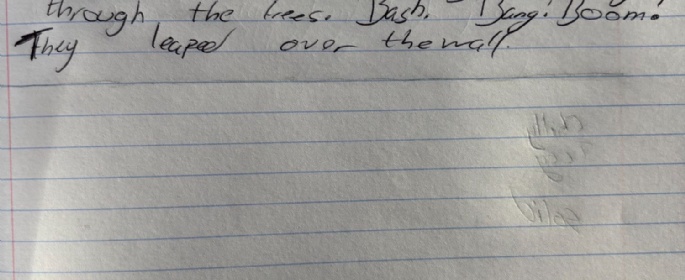 through the trees. Bash. Bang! Boom!
They leaped over the wall.